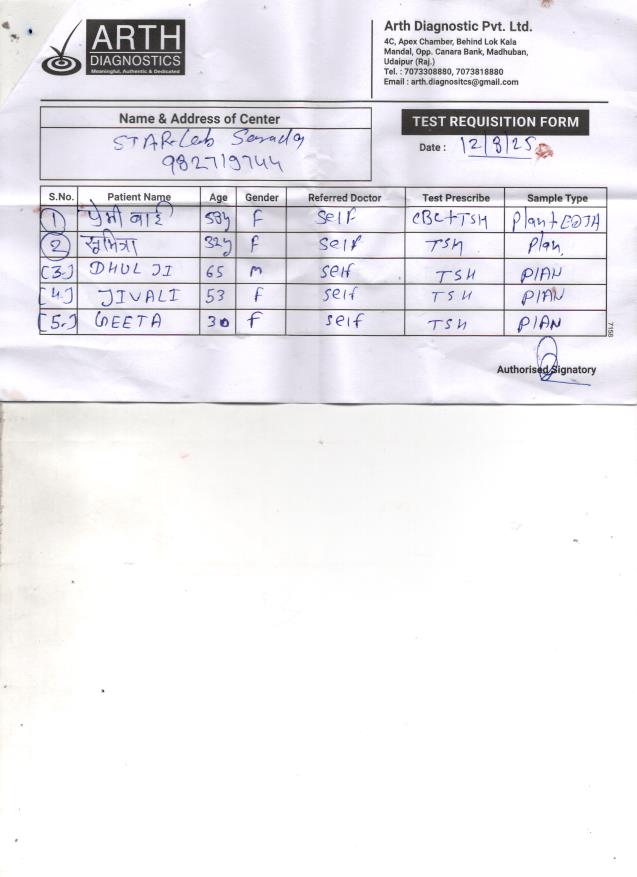 ARTH
DIAGNOSTICS
Meaningful, Authentic & Dedicated
Arth Diagnostic Pvt. Ltd.
4C, Apex Chamber, Behind Lok Kala
Mandal, Opp. Canara Bank, Madhuban,
Udaipur (Raj.)
Tel. : 7073308880, 7073818880
Email : arth.diagnositcs@gmail.com
Name & Address of Center
STAR Lab
982719744
TEST REQUISITION FORM
Date : 12/8/25
S.No. Patient Name Age Gender Referred Doctor Test Prescribe Sample Type
1 प्रेमी बाई 58y F Self CBC+TSH Plan+EDTA
2 सुमित्रा 32y F Self TSH Plan
[3.] DHUL JI 65 M self TSH PlAN
[4.] JIVALI 53 f self TSH PlAN
[5.] GEETA 30 f self TSH PlAN
7158
Authorised Signatory